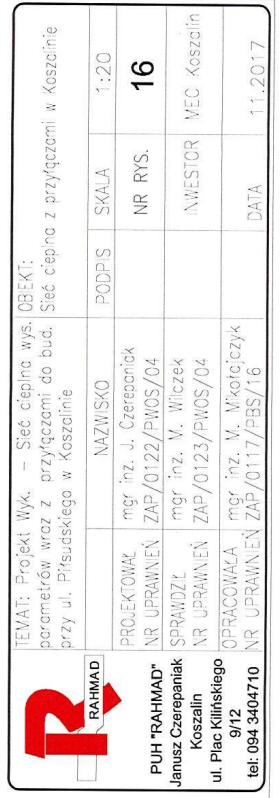 RAHMAD
PUH "RAHMAD"
Janusz Czerepaniak
Koszalin
ul. Plac Kilińskiego
9/12
tel: 094 3404710
TEMAT: Projekt Wyk. – Sieć cieplna wys.
parametrów wraz z przyłączami do bud.
przy ul. Piłsudskiego w Koszalinie
OBIEKT:
Sieć cieplna z przyłączami w Koszalinie
NAZWISKO
PODPIS
SKALA
1:20
PROJEKTOWAŁ
mgr inż. J. Czerepaniak
NR UPRAWNIEŃ
ZAP/0122/PWOS/04
NR RYS.
16
SPRAWDZIŁ
mgr inż. M. Wilczek
NR UPRAWNIEŃ
ZAP/0123/PWOS/04
INWESTOR
MEC Koszalin
OPRACOWAŁA
mgr inż. M. Mikołajczyk
NR UPRAWNIEŃ
ZAP/0117/PBS/16
DATA
11.2017